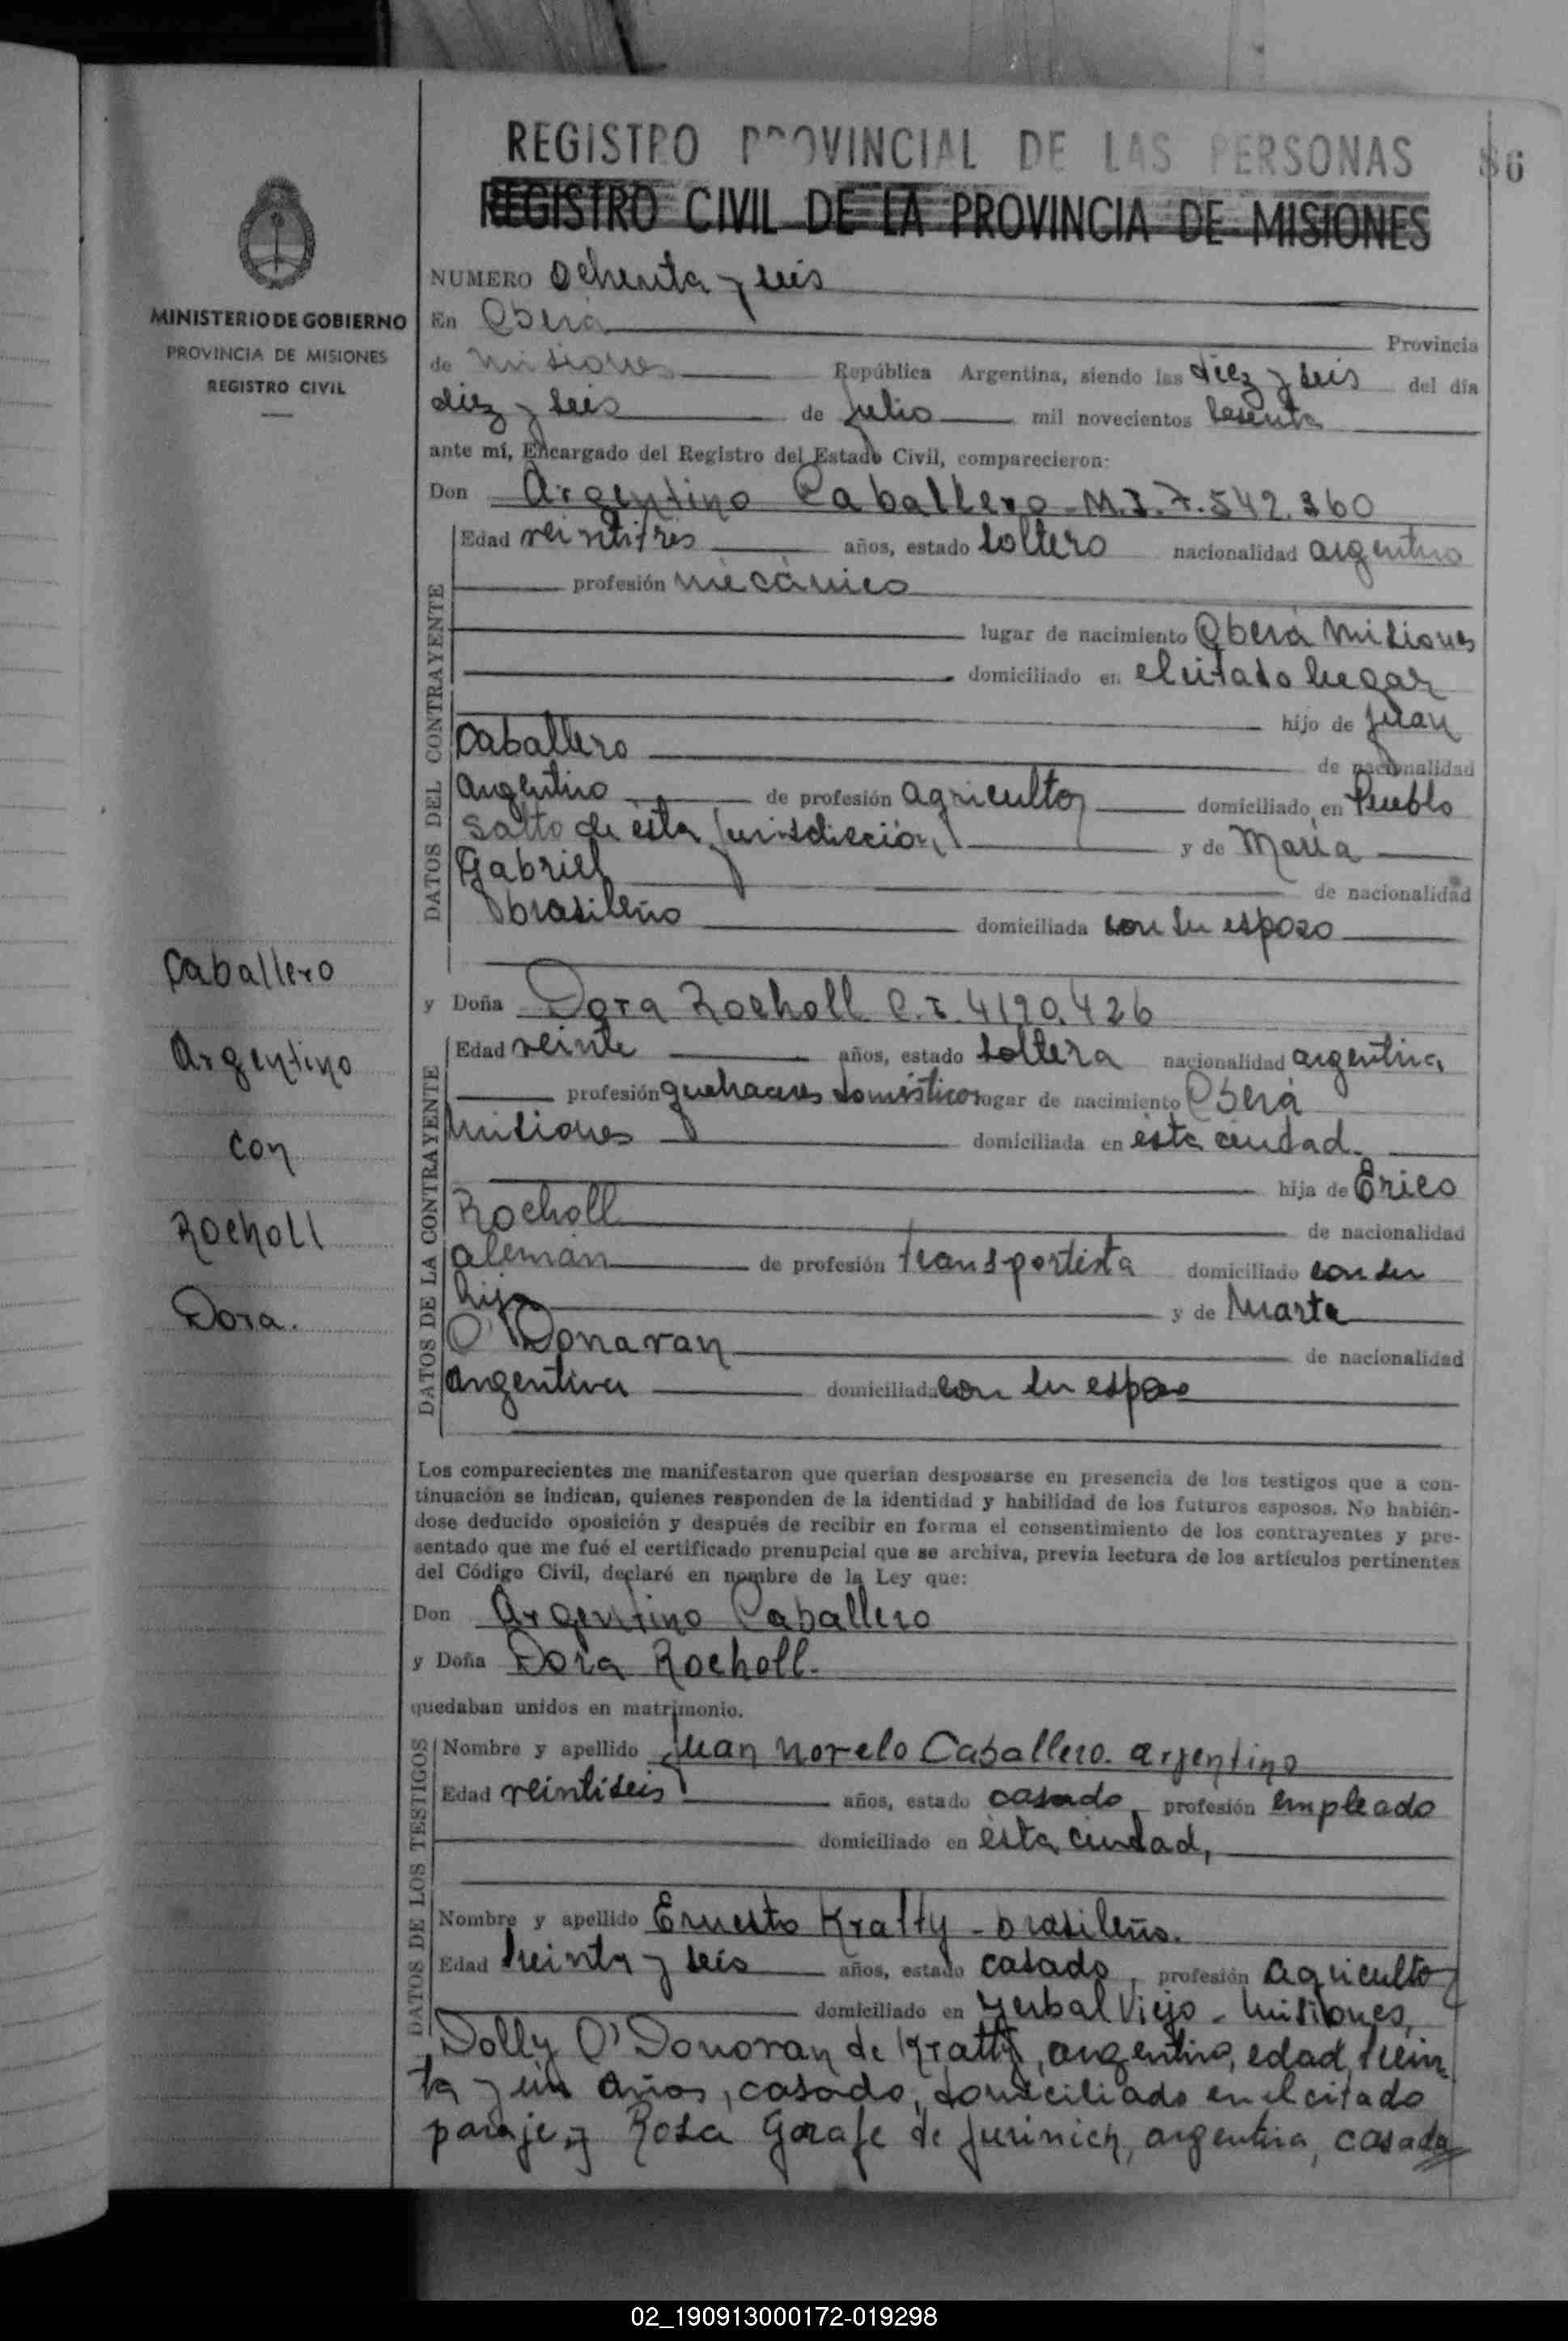 REGISTRO PROVINCIAL DE LAS PERSONAS
86
REGISTRO CIVIL DE LA PROVINCIA DE MISIONES
MINISTERIO DE GOBIERNO
PROVINCIA DE MISIONES
REGISTRO CIVIL
NUMERO Ochenta y seis
En Oberá Provincia
de Misiones República Argentina, siendo las diez y seis del día
diez y seis de Julio mil novecientos sesenta
ante mí, Encargado del Registro del Estado Civil, comparecieron:
Don Argentino Caballero M.I. 7.542.360
DATOS DEL CONTRAYENTE
Edad veintitres años, estado soltero nacionalidad argentino
profesión mecánico
lugar de nacimiento Oberá Misiones
domiciliado en el citado lugar
hijo de Juan
Caballero de nacionalidad
argentino de profesión agricultor domiciliado en Pueblo
Salto de esta jurisdicción, y de María
Gabriel de nacionalidad
brasileño domiciliada con su esposo
y Doña Dora Rocholl C.I. 4190.426
DATOS DE LA CONTRAYENTE
Edad veinte años, estado soltera nacionalidad argentina
profesión quehaceres domésticos lugar de nacimiento Oberá
Misiones domiciliada en esta ciudad.
hija de Erico
Rocholl de nacionalidad
alemán de profesión transportista domiciliado con su
hija y de Marta
O'Donavan de nacionalidad
argentina domiciliada con su esposo
Los comparecientes me manifestaron que querían desposarse en presencia de los testigos que a con-
tinuación se indican, quienes responden de la identidad y habilidad de los futuros esposos. No habién-
dose deducido oposición y después de recibir en forma el consentimiento de los contrayentes y pre-
sentado que me fué el certificado prenupcial que se archiva, previa lectura de los artículos pertinentes
del Código Civil, declaré en nombre de la Ley que:
Don Argentino Caballero
y Doña Dora Rocholl.
quedaban unidos en matrimonio.
DATOS DE LOS TESTIGOS
Nombre y apellido Juan Norelo Caballero. argentino
Edad veintiseis años, estado casado, profesión empleado
domiciliado en esta ciudad,
Nombre y apellido Ernesto Kratty - brasileño.
Edad treinta y seis años, estado casado, profesión agricultor
domiciliado en Yerbal Viejo - Misiones,
Dolly O'Donovan de Kratty, argentina, edad trein
ta y un años, casado, domiciliado en el citado
paraje, y Rosa Garafe de Jurinich, argentina, casada
Caballero
Argentino
con
Rocholl
Dora.
02_190913000172-019298